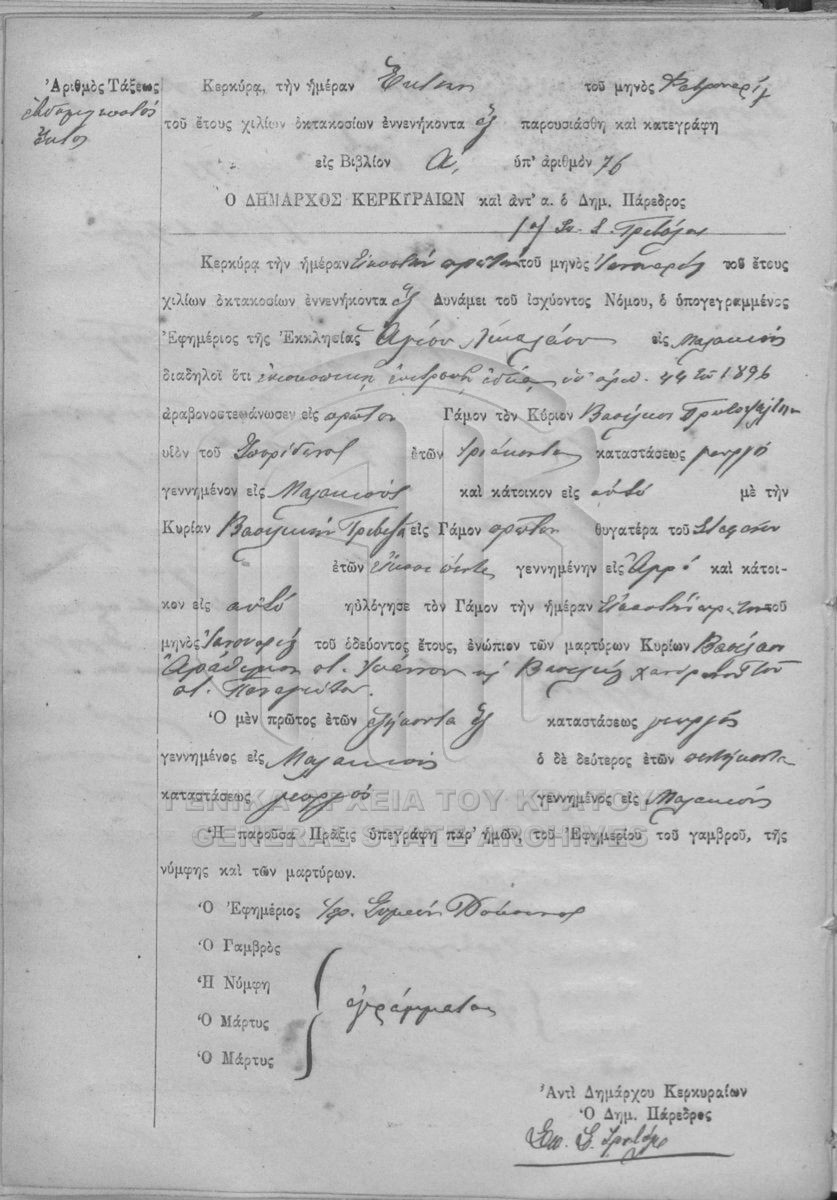 Ἀριθμὸς Τάξεως
ἑβδομηκοστός
ἕκτος
Κερκύρα, τὴν ἡμέραν Ἕκτην τοῦ μηνὸς Φεβρουαρίου
τοῦ ἔτους χιλίων ὀκτακοσίων ἐννενήκοντα ἓξ παρουσιάσθη καὶ κατεγράφη
εἰς Βιβλίον Α, ὑπ' ἀριθμὸν 76
Ο ΔΗΜΑΡΧΟΣ ΚΕΡΚΥΡΑΙΩΝ καὶ ἀντ' α. ὁ Δημ. Πάρεδρος
Σπ. Σ.
Κερκύρα τὴν ἡμέραν Εἰκοστὴν πρώτην τοῦ μηνὸς Ἰανουαρίου τοῦ ἔτους
χιλίων ὀκτακοσίων ἐννενήκοντα ἓξ Δυνάμει τοῦ ἰσχύοντος Νόμου, ὁ ὑπογεγραμμένος
Ἐφημέριος τῆς Ἐκκλησίας Ἁγίου Νικολάου εἰς Μαλακιούς
διαδηλοῖ ὅτι ἐπισκοπικῇ ἐπιτροπῇ ἀδείᾳ ὑπ' ἀριθ. 44 τοῦ 1896
ἀραβονοστεφάνωσεν εἰς πρῶτον Γάμον τὸν Κύριον Βασίλειον Πρωτοψάλτην
υἱὸν τοῦ Σπυρίδωνος ἐτῶν τριάκοντα καταστάσεως γεωργὸ
γεννημένον εἰς Μαλακιούς καὶ κάτοικον εἰς αὐτὸ μὲ τὴν
Κυρίαν Βασιλικὴν εἰς Γάμον πρῶτον θυγατέρα τοῦ Στεφάνου
ἐτῶν εἴκοσι πέντε γεννημένην εἰς καὶ κάτοι-
κον εἰς αὐτὸ ηὐλόγησε τὸν Γάμον τὴν ἡμέραν Εἰκοστὴν πρώτην τοῦ
μηνὸς Ἰανουαρίου τοῦ ὁδεύοντος ἔτους, ἐνώπιον τῶν μαρτύρων Κυρίων Βασιλείου
Ἰωάννου κ Βασιλείου
Παναγιώτου.
Ὁ μὲν πρῶτος ἐτῶν ἑξήκοντα ἓξ καταστάσεως γεωργὸς
γεννημένος εἰς Μαλακιούς ὁ δὲ δεύτερος ἐτῶν πεντήκοντα
καταστάσεως γεωργὸς γεννημένος εἰς Μαλακιούς
ΓΕΝΙΚΑ ΑΡΧΕΙΑ ΤΟΥ ΚΡΑΤΟΥΣ
GENERAL STATE ARCHIVES
Ἡ παροῦσα Πρᾶξις ὑπεγράφη παρ' ἡμῶν, τοῦ Ἐφημερίου τοῦ γαμβροῦ, τῆς
νύμφης καὶ τῶν μαρτύρων.
Ὁ Ἐφημέριος Ἱερ. Συμεὼν
Ὁ Γαμβρὸς
Ἡ Νύμφη
ἀγράμματοι
Ὁ Μάρτυς
Ὁ Μάρτυς
Ἀντὶ Δημάρχου Κερκυραίων
Ὁ Δημ. Πάρεδρος
Σπ. Σ.